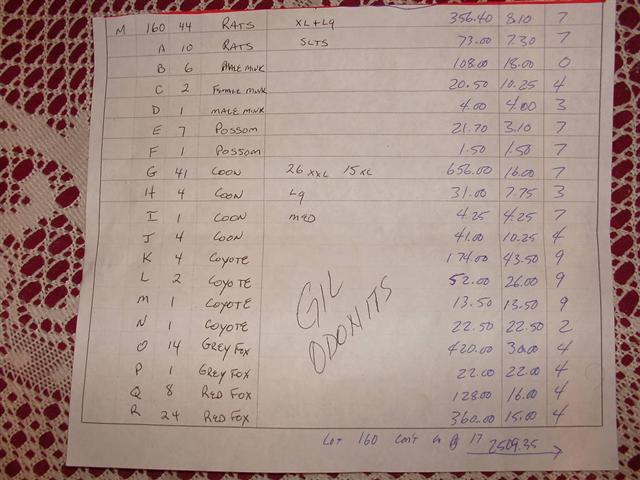 M 160 44 RATS XL+Lg 356.40 8.10 7
A 10 RATS SLTS 73.00 7.30 7
B 6 MALE MINK 108.00 18.00 0
C 2 FEMALE MINK 20.50 10.25 4
D 1 MALE MINK 4.00 4.00 3
E 7 POSSOM 21.70 3.10 7
F 1 POSSOM 1.50 1.50 7
G 41 COON 26 XXL 15 XL 656.00 16.00 7
H 4 COON Lg 31.00 7.75 3
I 1 COON MED 4.25 4.25 7
J 4 COON 41.00 10.25 4
K 4 COYOTE 174.00 43.50 9
L 2 COYOTE 52.00 26.00 9
M 1 COYOTE 13.50 13.50 9
N 1 COYOTE 22.50 22.50 2
O 14 GREY FOX 420.00 30.00 4
P 1 GREY FOX 22.00 22.00 4
Q 8 RED FOX 128.00 16.00 4
R 24 RED FOX 360.00 15.00 4
GIL
ODONITS
Lot 160 con't on Pg 17 2509.35